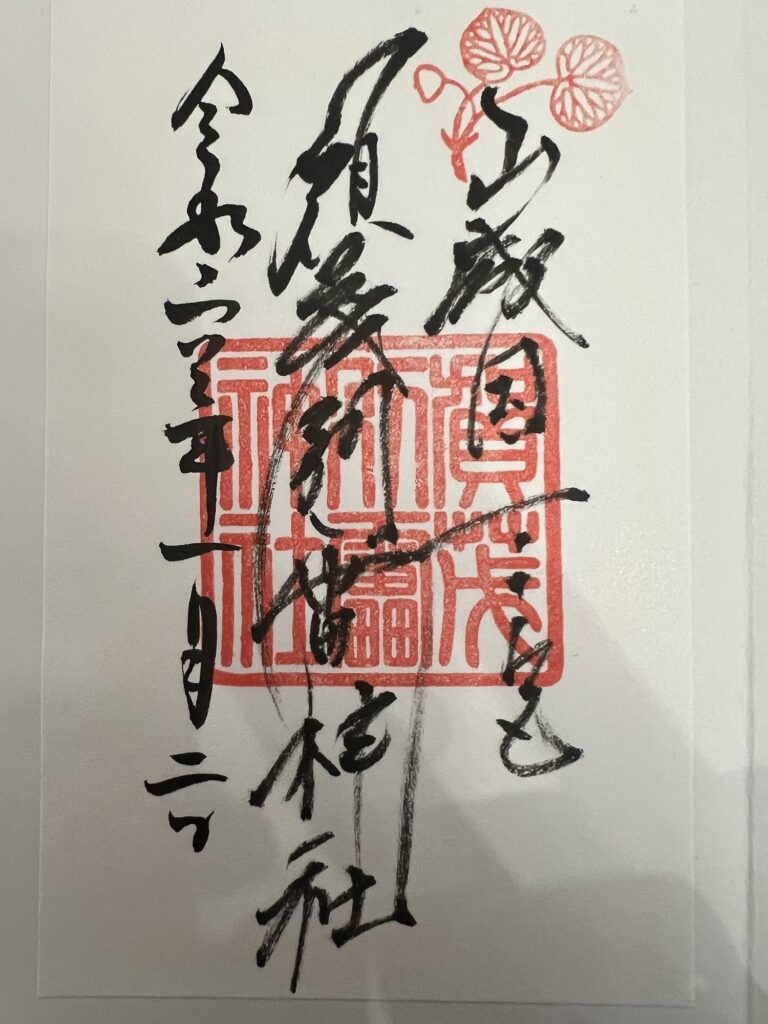 山城国一之宮
賀茂別雷神社
令和六年一月二日
賀茂
別雷
神社